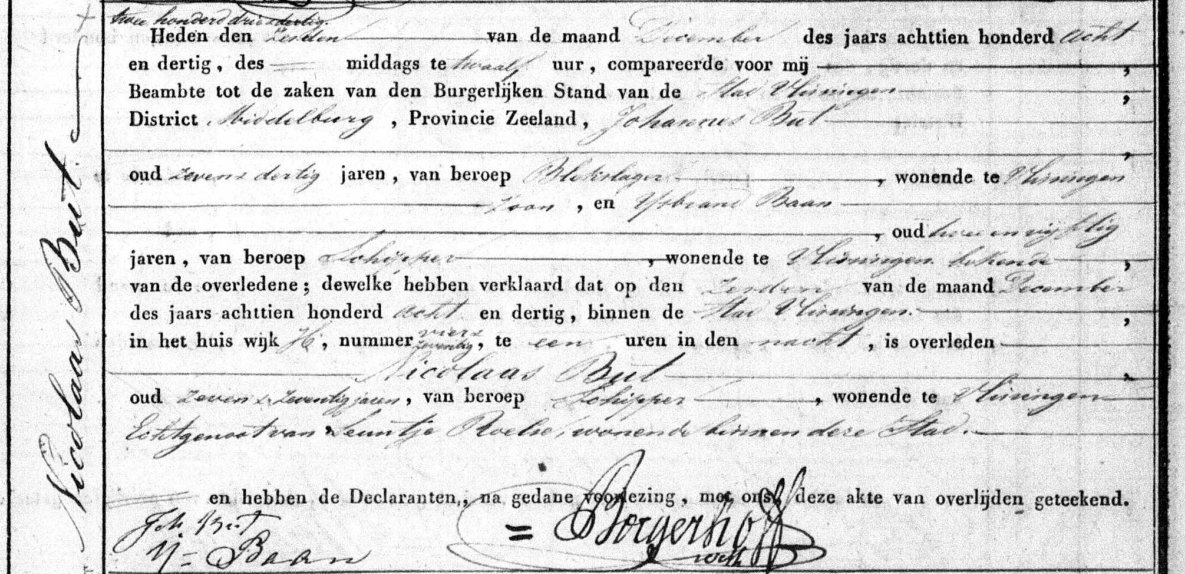 twee honderd drie en dertig.
Heden den zesden van de maand December des jaars achttien honderd acht
en dertig, des middags te twaalf uur, compareerde voor mij ,
Beambte tot de zaken van den Burgerlijken Stand van de Stad Vlissingen ,
District Middelburg, Provincie Zeeland, Johannes But
,
oud zeven & dertig jaren, van beroep Blokslager, wonende te Vlissingen
zoon, en IJsbrand Baan
, oud twee en vijftig
jaren, van beroep Schipper, wonende te Vlissingen bekende ,
van de overledene; dewelke hebben verklaard dat op den zesden van de maand December
des jaars achttien honderd acht en dertig, binnen de Stad Vlissingen. ,
in het huis wijk H, nummer vier & zeventig, te een uren in den nacht, is overleden
Nicolaas But ,
oud zeven & zeventig jaren, van beroep Schipper, wonende te Vlissingen
Echtgenoot van Leuntje Roelse, wonende binnen deze Stad.
en hebben de Declaranten, na gedane voorlezing, met ons deze akte van overlijden geteekend.
Joh. But
IJ= Baan
= Borgerhoff
weth
Nicolaas But